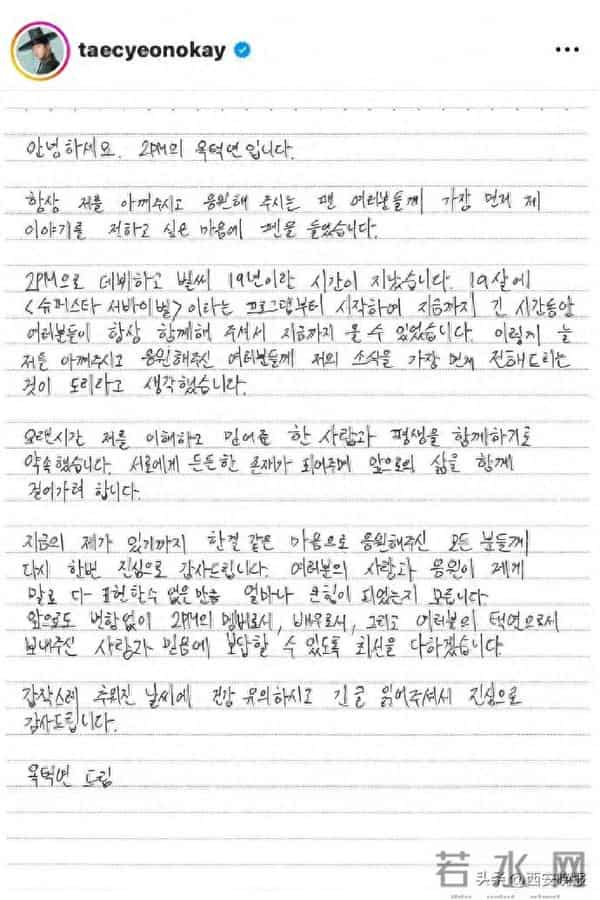 taecyeonokay
안녕하세요. 2PM의 옥택연입니다.
항상 저를 아껴주시고 응원해 주시는 팬 여러분들께 가장 먼저 제
이야기를 전하고 싶은 마음에 펜을 들었습니다.
2PM으로 데뷔하고 벌써 19년이란 시간이 지났습니다. 19살에
<슈퍼스타 서바이벌>이라는 프로그램부터 시작하여 지금까지 긴 시간동안
여러분들이 항상 함께해 주셔서 지금까지 올 수 있었습니다. 이렇게 늘
저를 아껴주시고 응원해주신 여러분들께 저의 소식을 가장 먼저 전해드리는
것이 도리라고 생각했습니다.
오랜시간 저를 이해하고 믿어준 한 사람과 평생을 함께하기로
약속했습니다. 서로에게 든든한 존재가 되어주며 앞으로의 삶을 함께
걸어가려 합니다.
지금의 제가 있기까지 한결 같은 마음으로 응원해주신 모든 분들께
다시 한번 진심으로 감사드립니다. 여러분의 사랑과 응원이 제게
말로 다 표현할수 없을 만큼 얼마나 큰힘이 되었는지 모릅니다.
앞으로도 변함없이 2PM의 멤버로서, 배우로서, 그리고 여러분의 택연으로서
보내주신 사랑과 믿음에 보답할 수 있도록 최선을 다하겠습니다.
갑작스레 추워진 날씨에 건강 유의하시고 긴글 읽어주셔서 진심으로
감사드립니다.
옥택연 드림
若水网
头条@西安晚报